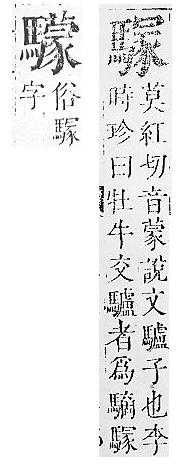 䮫
莫紅切音蒙說文驢子也李
時珍曰牡牛交驢者爲䮫
𩦺
俗䮫
字